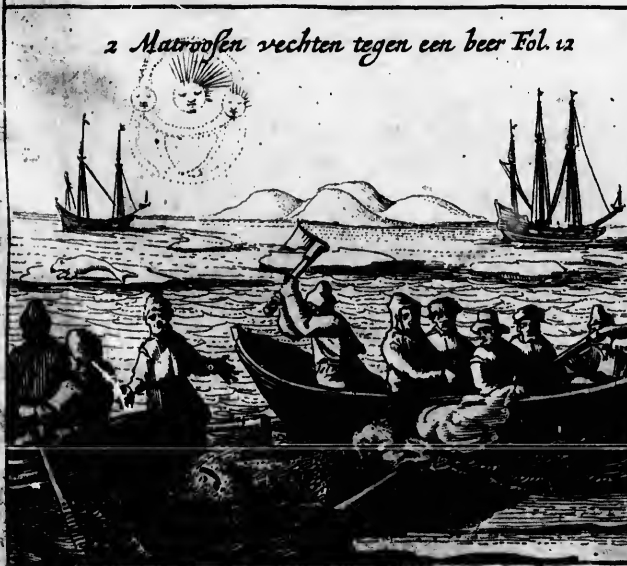 2 Matroosen vechten tegen een beer Fol. 12